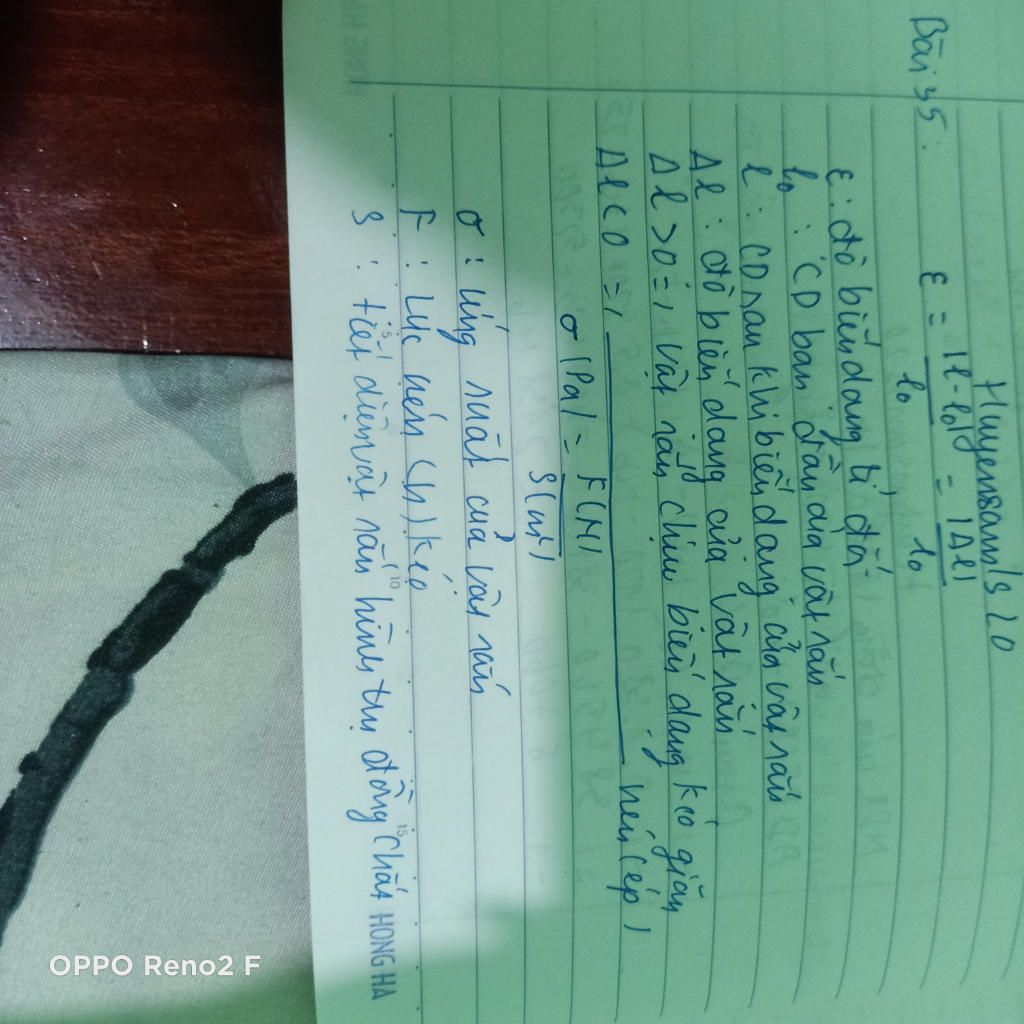 Huyensam's 20
Bài 35:
ε = |l - l₀| / l₀ = |Δl| / l₀
ε: độ biến dạng tỉ đối
l₀ : CD ban đầu của vật rắn
l : CD sau khi biến dạng của vật rắn
Δl : độ biến dạng của vật rắn
Δl > 0 => vật rắn chịu biến dạng kéo giãn
Δl < 0 => ______ nén (ép)
σ (Pa) = F(N) / S(m²)
σ : ứng suất của vật rắn
F : Lực nén (h) kéo
S : tiết diện vật rắn hình trụ đồng chất
5 10 15
HONG HA
OPPO Reno2 F